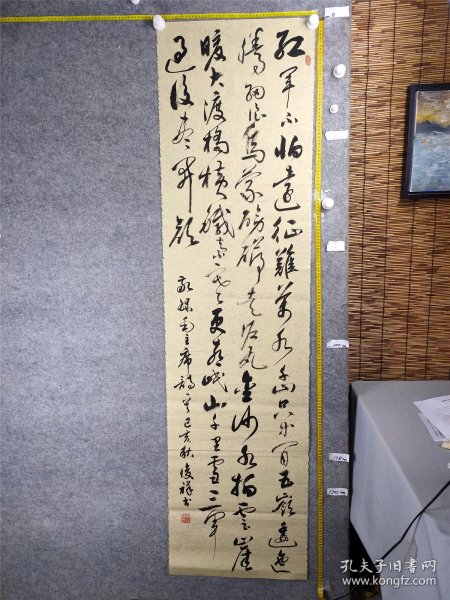 红军不怕远征难万水千山只等闲五岭逶迤
腾细浪乌蒙磅礴走泥丸金沙水拍云崖
暖大渡桥横铁索寒更喜岷山千里雪三军
过后尽开颜
敬录毛主席诗 己亥秋 俊祥书
孔夫子旧书网
kongfz.com